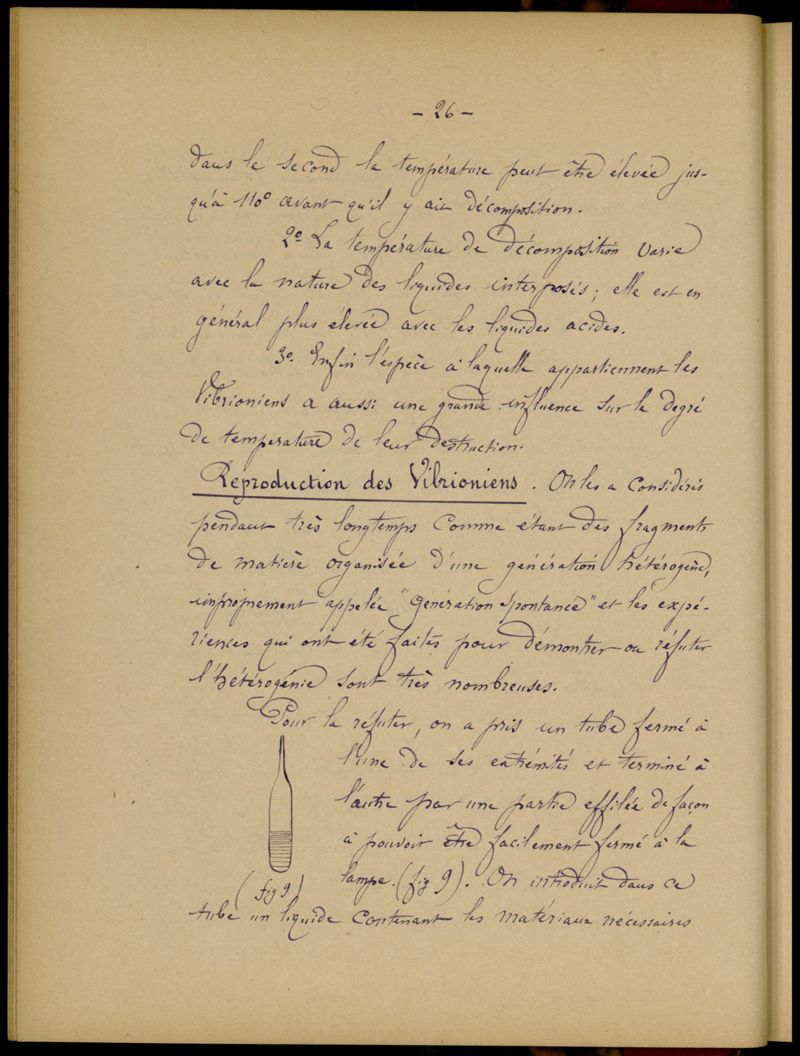 - 26 -
dans le second la température peut être élevée jus-
qu'à 110° avant qu'il y ait décomposition.
2º La température de décomposition varie
avec la nature des liquides interposés; elle est en
général plus élevée avec les liquides acides.
3º. Enfin l'espèce à laquelle appartiennent les
Vibrioniens a aussi une grande influence sur le degré
de température de leur destruction.
Reproduction des Vibrioniens. On les a considérés
pendant très longtemps comme étant des fragments
de matière organisée d'une génération hétérogène,
improprement appelée "génération spontanée" et les expé-
riences qui ont été faites pour démontrer ou réfuter
l'hétérogénie sont très nombreuses.
Pour la réfuter, on a pris un tube fermé à
l'une de ses extrémités et terminé à
l'autre par une partie effilée de façon
à pouvoir être facilement fermé à la
lampe. (fig 9). On introduit dans ce
(fig 9)
tube un liquide contenant les matériaux nécessaires